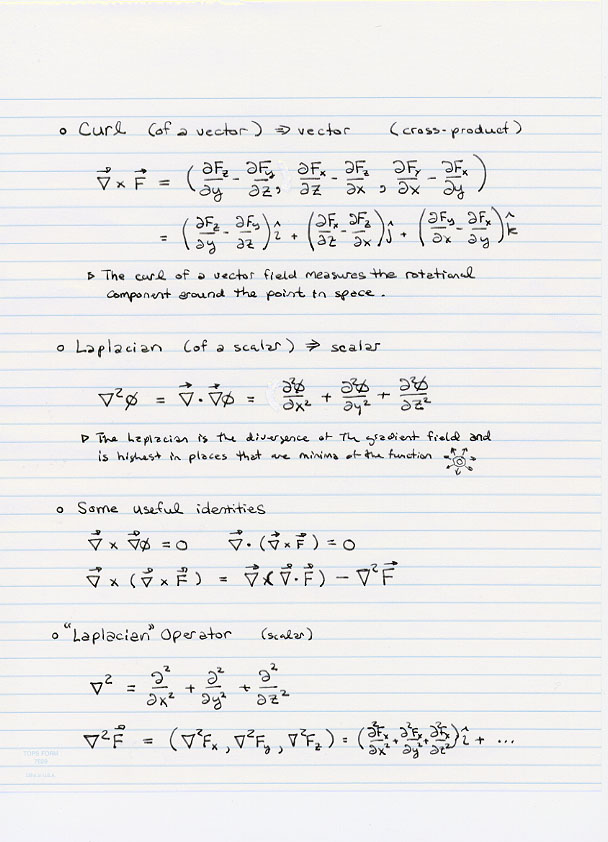 ∘ Curl (of a vector) ⇒ vector (cross-product)
∇⃗ × F⃗ = (∂F_z/∂y - ∂F_y/∂z, ∂F_x/∂z - ∂F_z/∂x, ∂F_y/∂x - ∂F_x/∂y)
= (∂F_z/∂y - ∂F_y/∂z) î + (∂F_x/∂z - ∂F_z/∂x) ĵ + (∂F_y/∂x - ∂F_x/∂y) k̂
▹ The curl of a vector field measures the rotational
component around the point in space.
∘ Laplacian (of a scalar) ⇒ scalar
∇²φ = ∇⃗ · ∇⃗φ = ∂²φ/∂x² + ∂²φ/∂y² + ∂²φ/∂z²
▹ The Laplacian is the divergence of the gradient field and
is highest in places that are minima of the function
∘ Some useful identities
∇⃗ × ∇⃗φ = 0 ∇⃗ · (∇⃗ × F⃗) = 0
∇⃗ × (∇⃗ × F⃗) = ∇⃗(∇⃗ · F⃗) - ∇²F⃗
∘ "Laplacian" Operator (scalar)
∇² = ∂²/∂x² + ∂²/∂y² + ∂²/∂z²
∇²F⃗ = (∇²F_x, ∇²F_y, ∇²F_z) = (∂²F_x/∂x² + ∂²F_x/∂y² + ∂²F_x/∂z²) î + ...
TOPS FORM